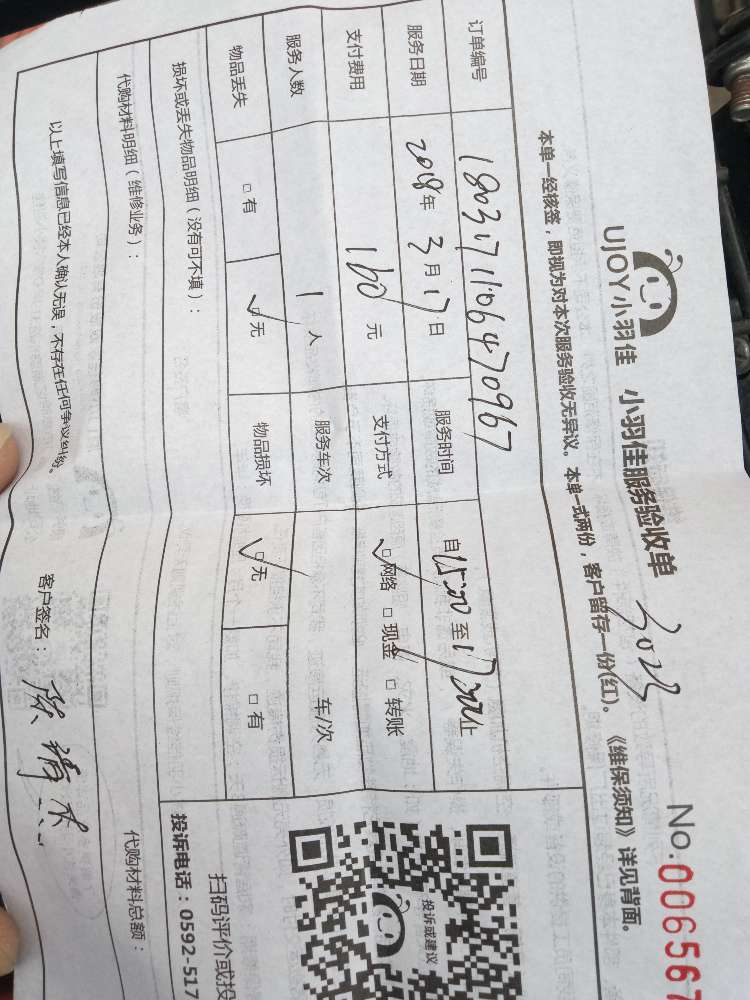 UJOY小羽佳 小羽佳服务验收单
3023
No.006567
本单一经核签，即视为对本次服务验收无异议。本单一式两份，客户留存一份(红)。《维保须知》详见背面。
订单编号 180317110647 0967
服务日期 2018年3月17日 服务时间 自15:00至17:00止
支付费用 160元 支付方式 ☑网络 □现金 □转账
服务人数 1人 服务车次 / 车/次
物品丢失 □有 ☑无 物品损坏 ☑无 □有
损坏或丢失物品明细（没有可不填）：
代购材料明细（维修业务）： 代购材料总额：
以上填写信息已经本人确认无误，不存在任何争议纠纷。 客户签名：
投诉或建议
扫码评价或投
投诉电话：0592-517